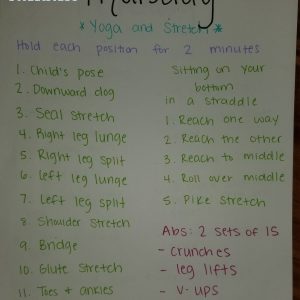 Thursday
*Yoga and Stretch*
Hold each position for 2 minutes
1. Child's pose
2. Downward dog
3. Seal stretch
4. Right leg lunge
5. Right leg split
6. Left leg lunge
7. Left leg split
8. Shoulder stretch
9. Bridge
10. Glute stretch
11. Toes + ankles
Sitting on your
bottom
in a straddle
1. Reach one way
2. Reach the other
3. Reach to middle
4. Roll over middle
5. Pike stretch
Abs: 2 sets of 15
- crunches
- leg lifts
- v-ups